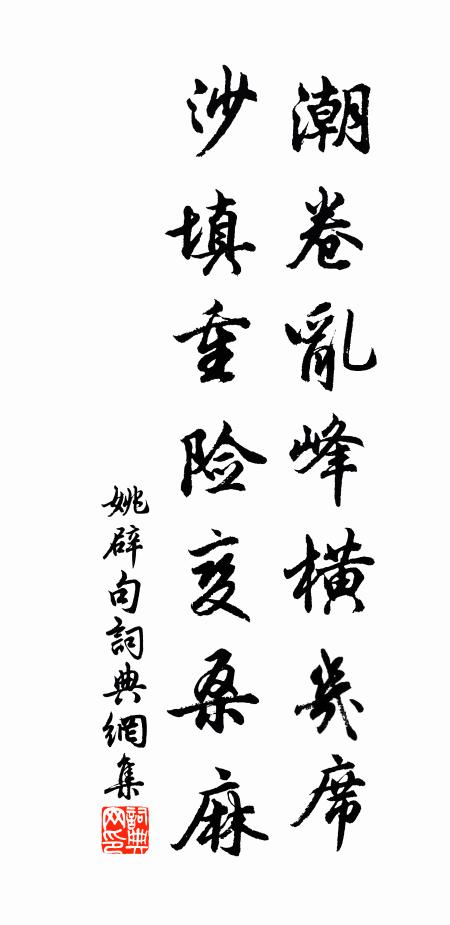 潮卷亂峰橫几席
沙填重险变桑麻
姚辟句詞典網集
詞典网印